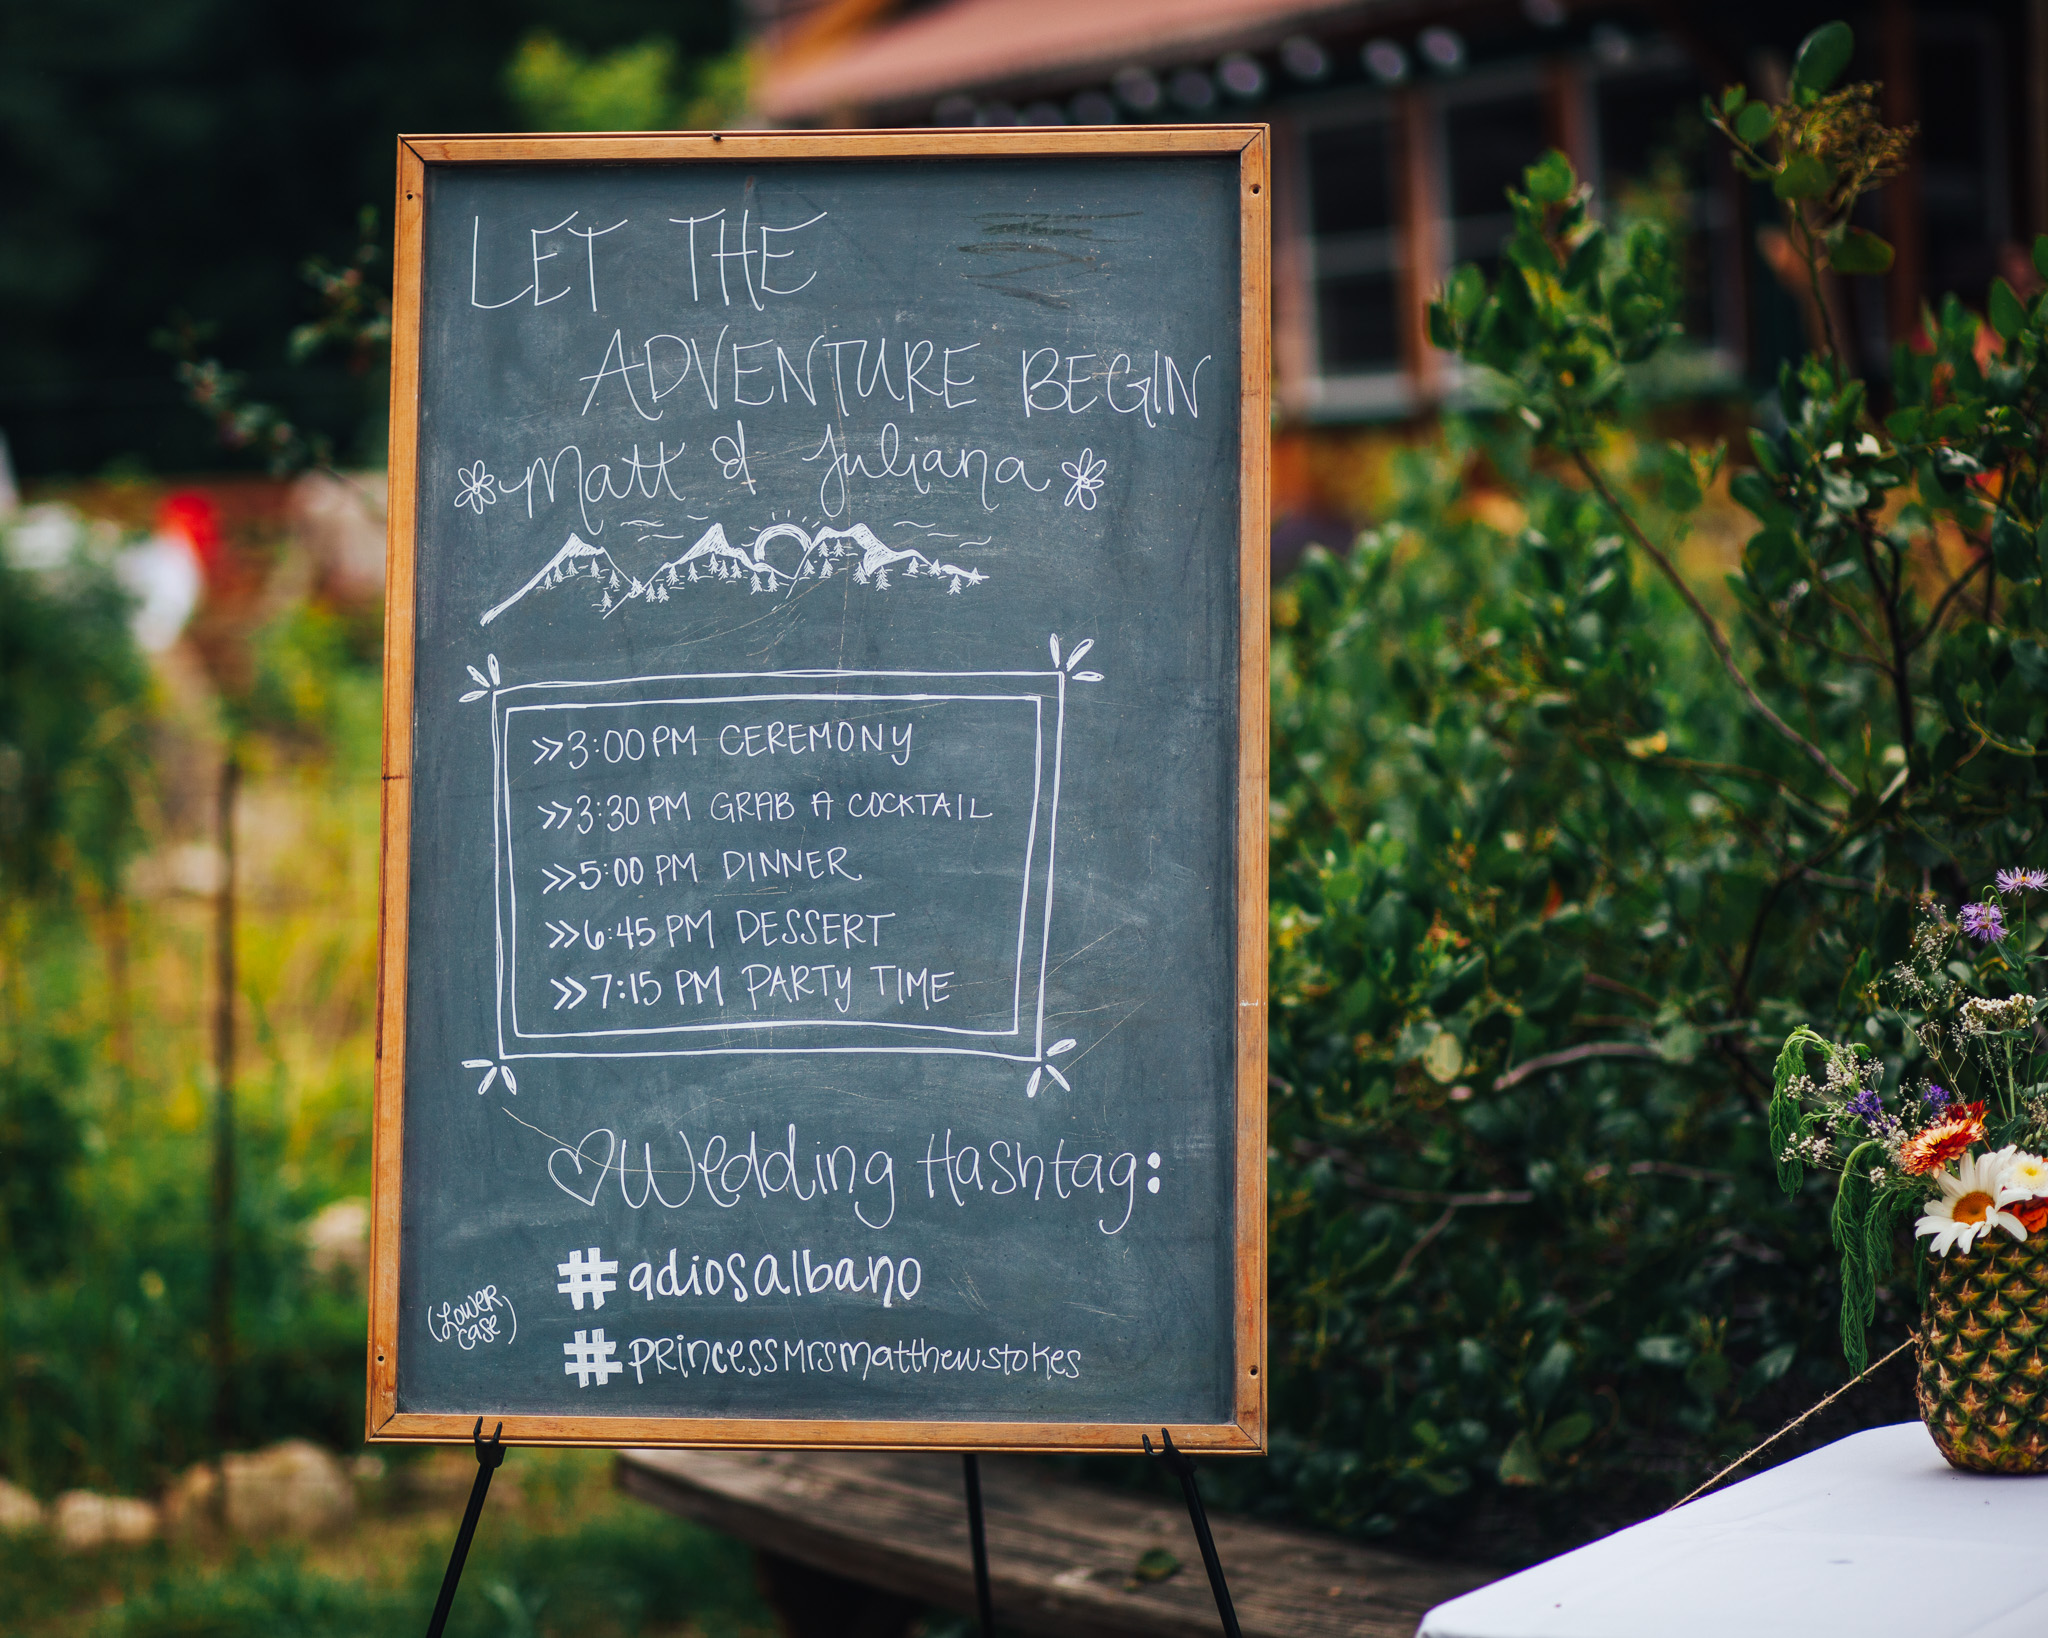 LET THE
ADVENTURE BEGIN
Matt & Juliana
>>3:00 PM CEREMONY
>>3:30 PM GRAB A COCKTAIL
>>5:00 PM DINNER
>>6:45 PM DESSERT
>>7:15 PM PARTY TIME
Wedding Hashtag:
#adiosalbano
(Lower
case)
#princessmrsmatthewstokes